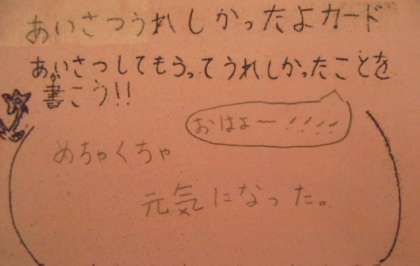 あいさつうれしかったよカード
あいさつしてもらってうれしかったことを
書こう!!
おはよー!!!!
めちゃくちゃ
元気になった。